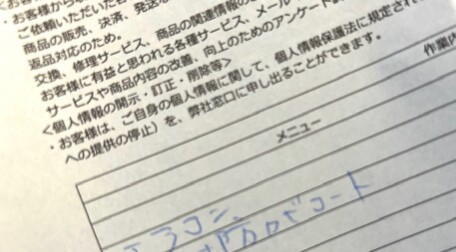 ・お客様から
ご依頼いただいた
商品の販売、決済、発送な
返品対応のため。
交換、修理サービス、商品の関連情報の
お客様に有益と思われる各種サービス、メール
サービスや商品内容の改善、向上のためのアンケート
<個人情報の開示・訂正・削除等>
・お客様は、ご自身の個人情報に関して、個人情報保護法に規定され
への提供の停止)を、弊社窓口に申し出ることができます。
作業内
メニュー
コート